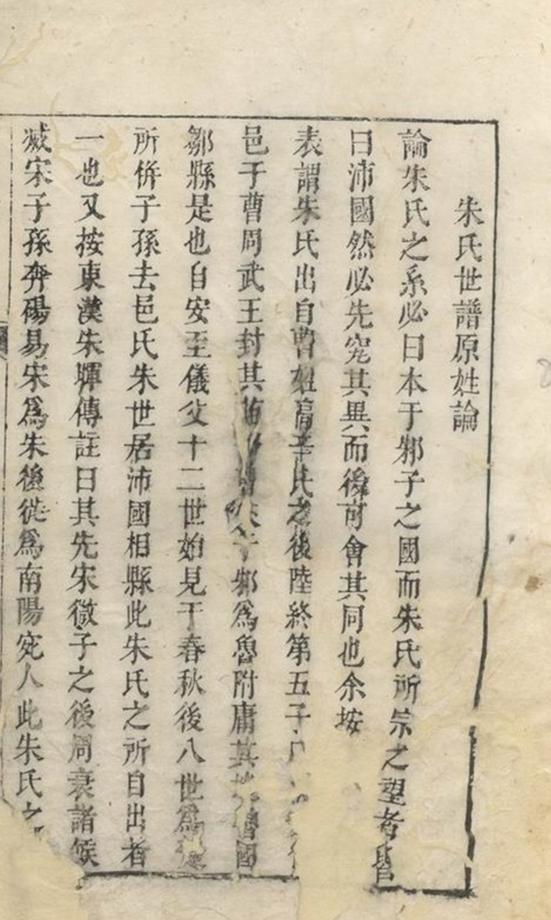 朱氏世譜原姓論
論朱氏之系必曰本于邾子之國而朱氏所宗之望者皆
曰沛國然必先究其異而後可會其同也余按
表謂朱氏出自曹姓高辛氏之後陸終第五子
邑于曹周武王封其 于邾為魯附庸其地 國
鄒縣是也自安至儀父十二世始見于春秋後八世為
所併子孫去邑氏朱世居沛國相縣此朱氏之所自出者
一也又按東漢朱暉傳註曰其先宋微子之後周衰諸侯
滅宋子孫奔碭易宋為朱後徙為南陽宛人此朱氏之